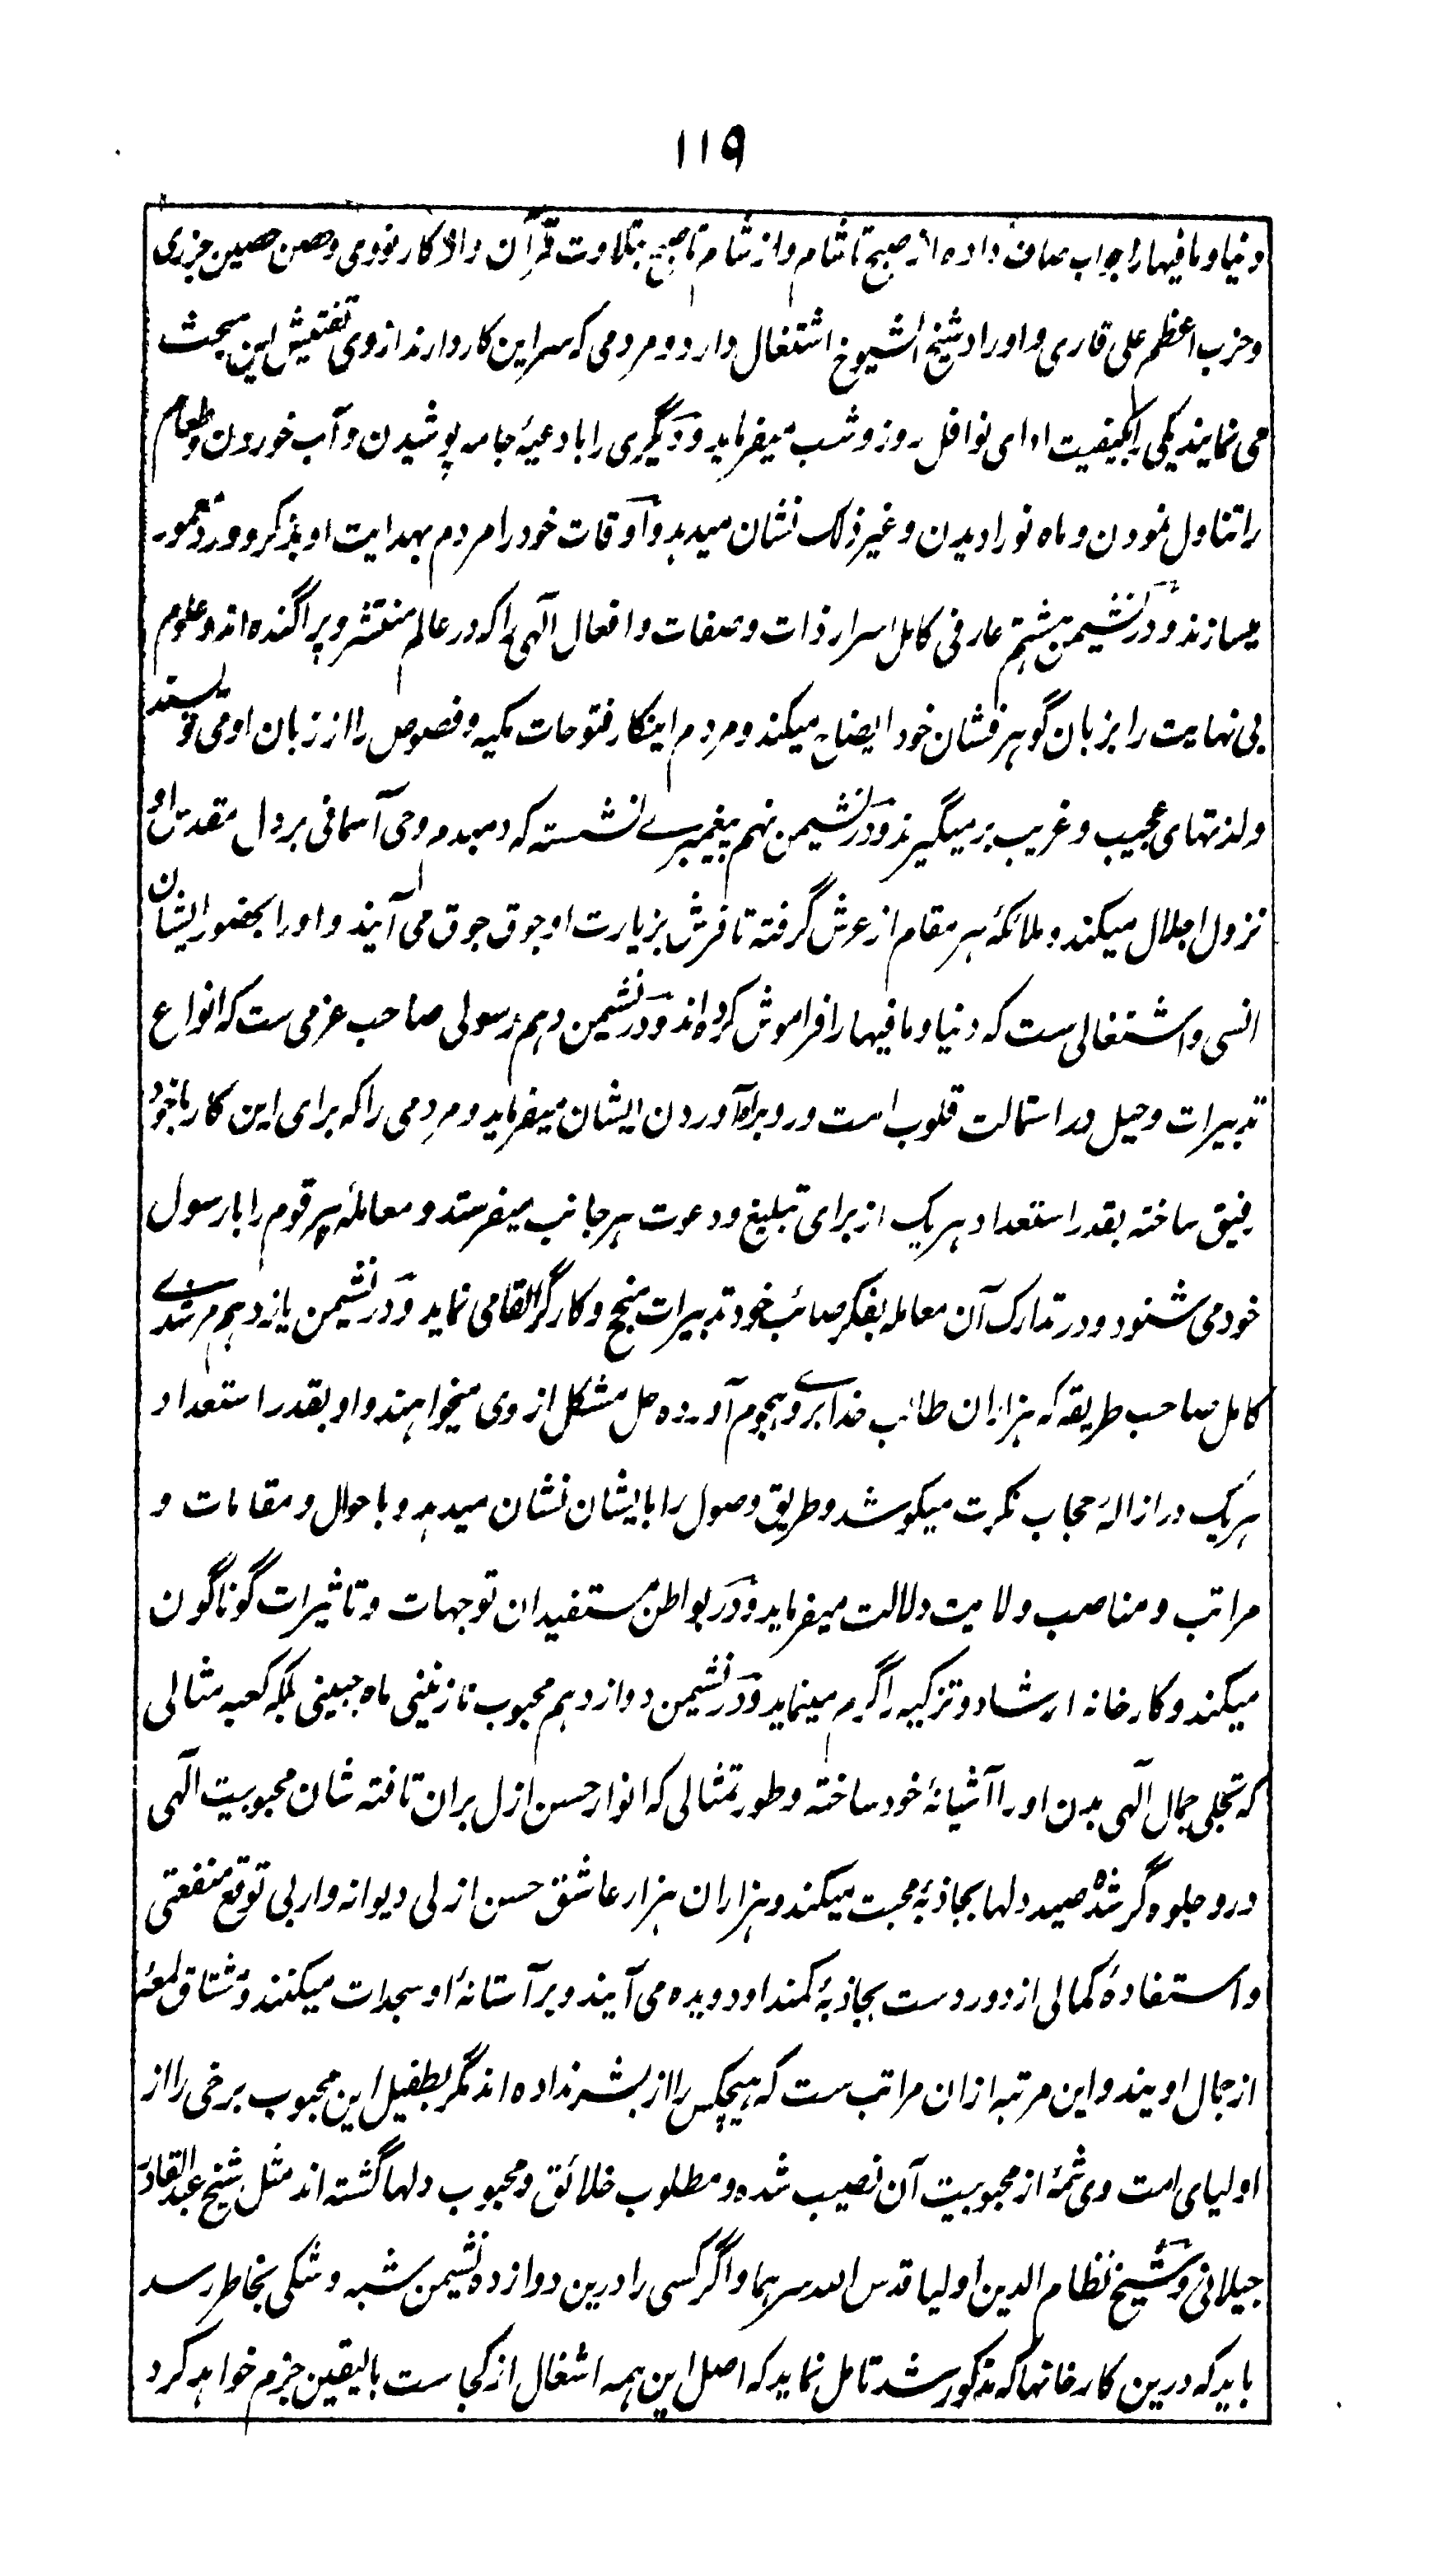 ۱۱۹
دنیا و مافیها را جواب صاف داده از صبح تا شام و از شام تا صبح بتلاوت قرآن و اذکار نووی و حصن حصین جزری
و حزب اعظم علی قاری و اوراد شیخ الشیوخ اشتغال دارد و مردمی که سر این کار دارند از وی تفتیش این مبحث
می نمایند یکی را بکیفیت ادای نوافل روز و شب میفرماید و دیگری را بادعیۂ جامه پوشیدن و آب خوردن و طعام
را تناول نمودن و ماه نو را دیدن و غیر ذلک نشان میدهد و اوقات خود را مردم بهدایت او بذکر و ورد معمور
میسازند و در نشیمن هشتم عارفی کامل اسرار ذات و صفات و افعال الهی را که در عالم منتشر و پراگنده اند و علوم
بی نهایت را بزبان گوهر فشان خود ایضاح میکند و مردم اینکار فتوحات مکیه و فصوص را از زبان او می نویسند
و لذتهای عجیب و غریب بر میگیرند و در نشیمن نهم پیغمبرے نشسته که دمبدم وحی آسمانی بر دل مقدس او
نزول اجلال میکند و ملائکۂ هر مقام از عرش گرفته تا فرش بزیارت او جوق جوق می آیند و او را بحضور ایشان
انسی و اشتغالی ست که دنیا و مافیها را فراموش کرده اند و در نشیمن دهم رسولی صاحب عزمی ست که انواع
تدبیرات و حیل در استمالت قلوب است و روبراه آوردن ایشان میفرماید و مردمی را که برای این کار با خود
رفیق ساخته بقدر استعداد هر یک از برای تبلیغ و دعوت هر جانب میفرستد و معاملۂ هر قوم را با رسول
خود می شنود و در تدارک آن معامله بفکر صائب خود تدبیرات منجح و کارگر القا می نماید و در نشیمن یازدهم مرشدے
کامل صاحب طریقه که هزاران طالب خدا برو هجوم آورده حل مشکل از وی میخواهند و او بقدر استعداد
هر یک در ازالۂ حجاب نکرت میکوشد و طریق وصول را بایشان نشان میدهد و باحوال و مقامات و
مراتب و مناصب ولایت دلالت میفرماید و در بواطن مستفیدان توجهات و تاثیرات گوناگون
میکند و کارخانه ارشاد و تزکیه را گرم مینماید و در نشیمن دوازدهم محبوب نازنینی ماه جبینی بلکه کعبه مثالی
که تجلی جمال الهی بدن او را آشیانۂ خود ساخته و طور تمثالی که انوار حسن ازل بران تافته شان محبوبیت الهی
درو جلوه گر شده صید دلها بجاذبۂ محبت میکند و هزاران هزار عاشق حسن ازلی دیوانه وار بی توقع منفعتی
و استفادۂ کمالی از دور دست بجاذبۂ کمند او دویده می آیند و بر آستانۂ او سجدات میکنند و مشتاق لمعۂ
از جمال اویند و این مرتبه ازان مراتب ست که هیچکس را از بشر نداده اند مگر بطفیل این محبوب برخی را از
اولیای امت وی شمۂ از محبوبیت آن نصیب شده و مطلوب خلائق و محبوب دلها گشته اند مثل شیخ عبدالقادر
جیلانی و شیخ نظام الدین اولیا قدس الله سرهما و اگر کسی را درین دوازده نشیمن شبه و شکی بخاطر رسد
باید که درین کارخانها که مذکور شد تامل نماید که اصل این همه اشغال از کجاست بالیقین جزم خواهد کرد